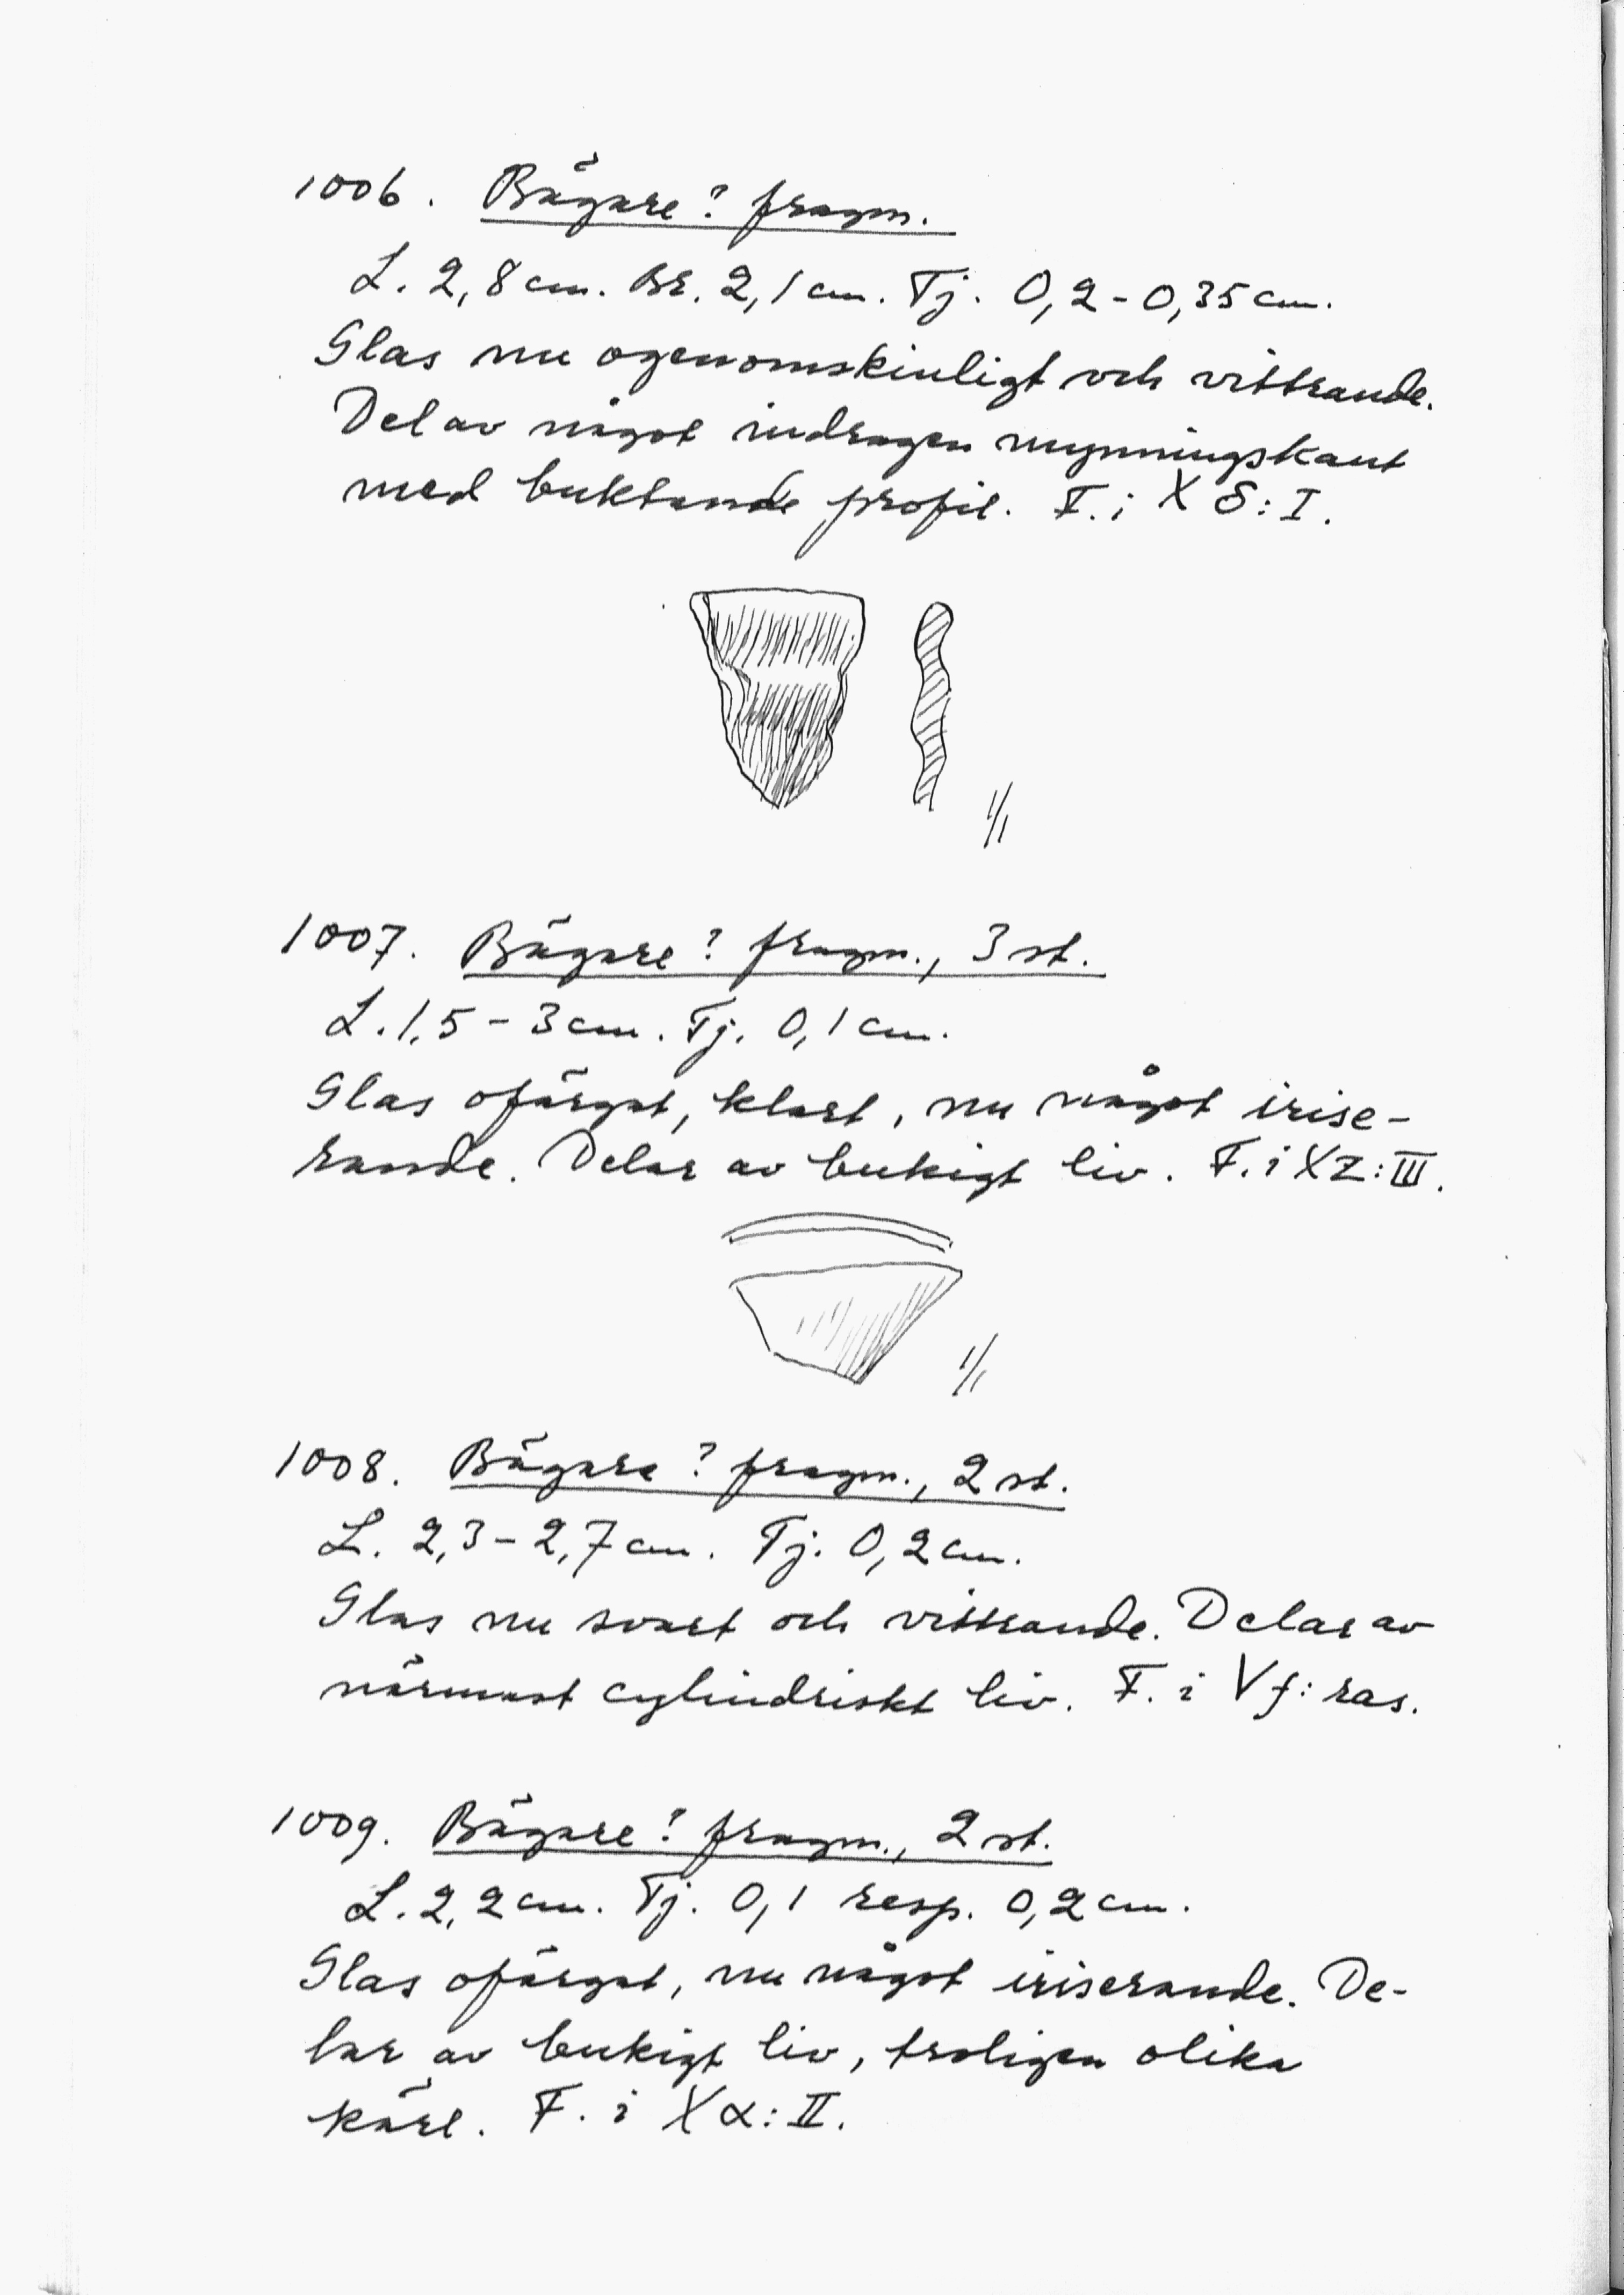 1006. Bägare? fragm.
L. 2,8 cm. Br. 2,1 cm. Tj. 0,2-0,35 cm.
Glas nu ogenomskinligt och vittrande.
Del av något indragen mynningskant
med buktande profil. F. i X δ: I.
1/1
1007. Bägare? fragm., 3 st.
L. 1,5 - 3 cm. Tj. 0,1 cm.
Glas ofärgat, klart, nu något irise-
rande. Delar av bukigt liv. F. i X Z: III.
1/1
1008. Bägare? fragm., 2 st.
L. 2,3 - 2,7 cm. Tj. 0,2 cm.
Glas nu svart och vittrande. Delar av
närmast cylindriskt liv. F. i V f: ras.
1009. Bägare? fragm., 2 st.
L. 2,2 cm. Tj. 0,1 resp. 0,2 cm.
Glas ofärgat, nu något iriserande. De-
lar av bukigt liv, troligen olika
kärl. F. i X α: II.